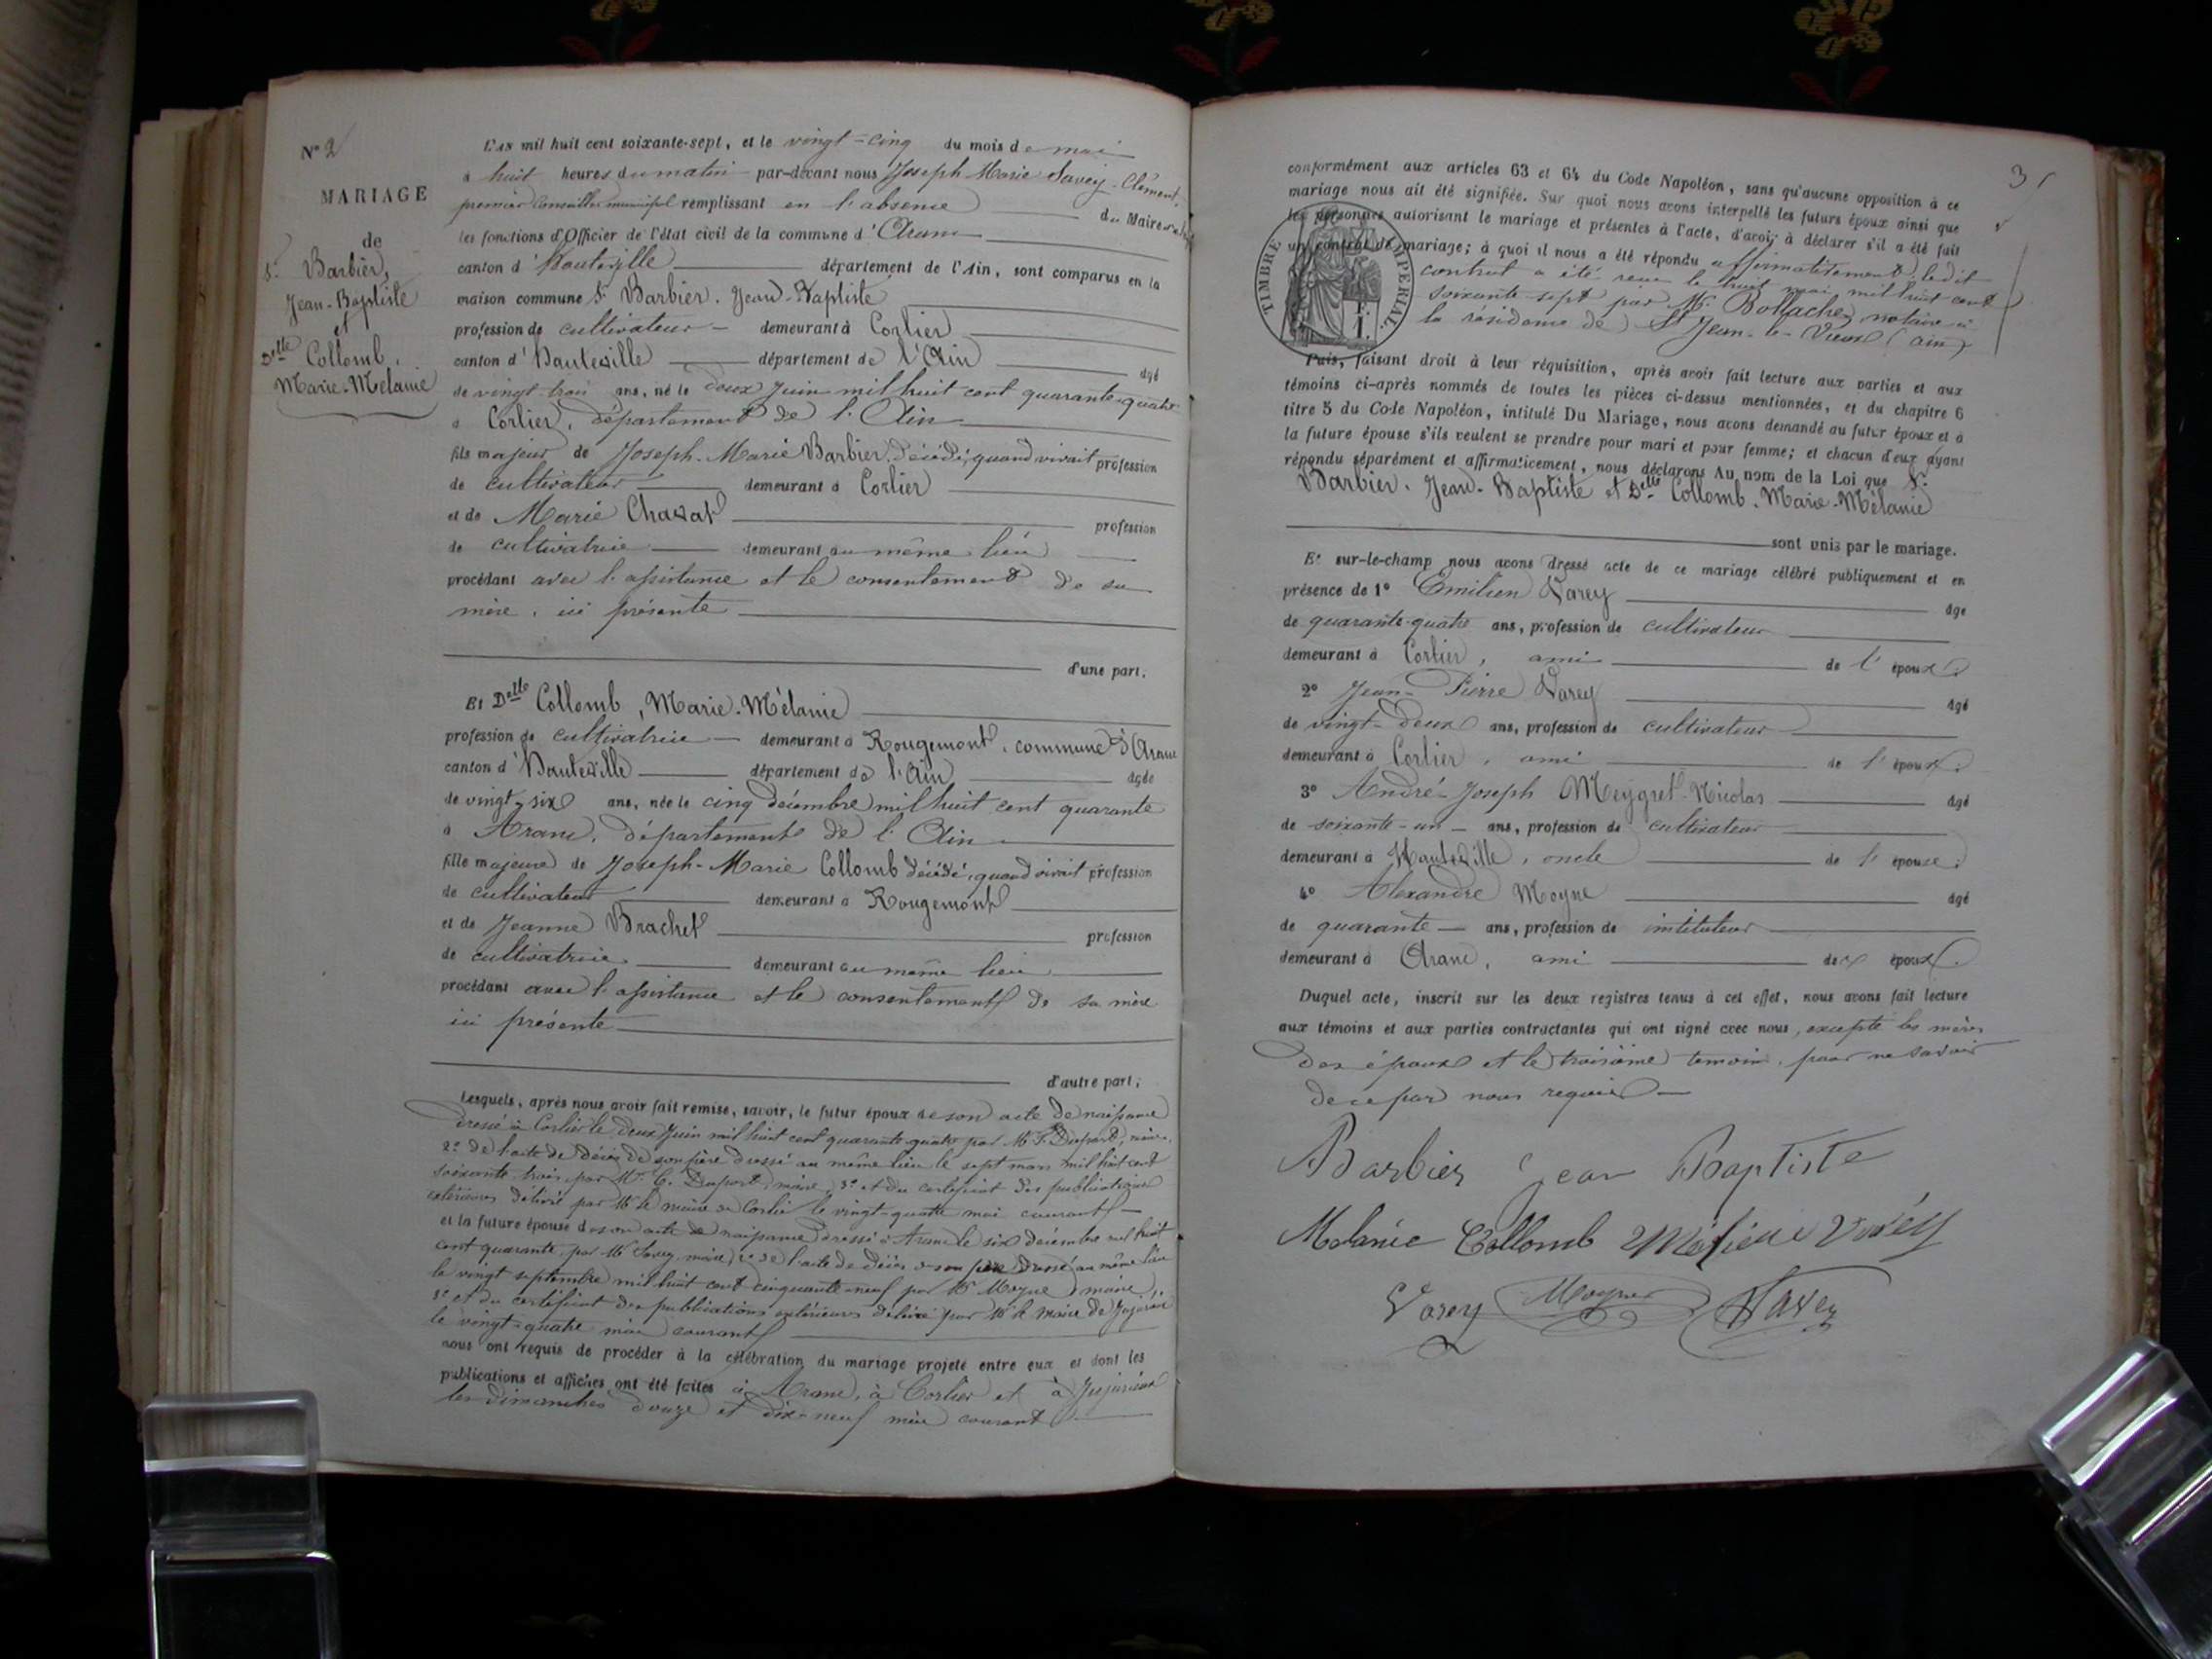 N° 2
MARIAGE
de
Sr Barbier,
Jean-Baptiste
et
Delle Collomb,
Marie-Mélanie
L'AN mil huit cent soixante-sept, et le vingt-cinq du mois de mai
à huit heures du matin par-devant nous Joseph Marie Savey-Clément,
premier Conseiller municipal remplissant en l'absence du Maire
les fonctions d'Officier de l'état civil de la commune d'Aranc
canton d'Hauteville département de l'Ain, sont comparus en la
maison commune Sr Barbier. Jean-Baptiste
profession de cultivateur demeurant à Corlier
canton d'Hauteville département de l'Ain âgé
de vingt-trois ans, né le deux Juin mil huit cent quarante-quatre
à Corlier, département de l'Ain
fils majeur de Joseph-Marie Barbier, décédé, quand vivait profession
de cultivateur demeurant à Corlier
et de Marie Chavat profession
de cultivatrice demeurant au même lieu
procédant avec l'assistance et le consentement de sa
mère, ici présente
d'une part.
Et Delle Collomb, Marie-Mélanie
profession de cultivatrice demeurant à Rougemont, commune d'Aranc
canton d'Hauteville département de l'Ain âgée
de vingt-six ans, née le cinq décembre mil huit cent quarante
à Aranc, département de l'Ain
fille majeure de Joseph-Marie Collomb décédé, quand vivait profession
de cultivateur demeurant à Rougemont
et de Jeanne Brachet profession
de cultivatrice demeurant au même lieu
procédant avec l'assistance et le consentement de sa mère
ici présente
d'autre part;
Lesquels, après nous avoir fait remise, savoir, le futur époux de son acte de naissance
dressé à Corlier le deux Juin mil huit cent quarante-quatre par Mr Duport, maire,
2° de l'acte de décès de son père dressé au même lieu le sept mars mil huit cent
soixante trois par Mr C. Duport, maire, 3° et du certificat des publications
extérieures délivré par Mr le maire de Corlier le vingt-quatre mai courant
et la future épouse de son acte de naissance dressé à Aranc le six décembre mil huit
cent quarante, par Mr Savey, maire, 2° de l'acte de décès de son père dressé au même lieu
le vingt septembre mil huit cent cinquante-neuf par Mr Moyne, maire,
3° et du certificat des publications extérieures délivré par Mr le Maire de Jujurieux
le vingt-quatre mai courant
nous ont requis de procéder à la célébration du mariage projeté entre eux et dont les
publications et affiches ont été faites à Aranc, à Corlier et à Jujurieux
les dimanches douze et dix-neuf mai courant
3
conformément aux articles 63 et 64 du Code Napoléon, sans qu'aucune opposition à ce
mariage nous ait été signifiée. Sur quoi nous avons interpellé les futurs époux ainsi que
les personnes autorisant le mariage et présentes à l'acte, d'avoir à déclarer s'il a été fait
un contrat de mariage; à quoi il nous a été répondu affirmativement, ledit
contrat a été reçu le huit mai mil huit cent
soixante-sept par Mr Bollache, notaire à
la résidence de St Jean-le-Vieux (ain)
TIMBRE IMPÉRIAL.
1 F.
Puis, faisant droit à leur réquisition, après avoir fait lecture aux parties et aux
témoins ci-après nommés de toutes les pièces ci-dessus mentionnées, et du chapitre 6
titre 5 du Code Napoléon, intitulé Du Mariage, nous avons demandé au futur époux et à
la future épouse s'ils veulent se prendre pour mari et pour femme; et chacun d'eux ayant
répondu séparément et affirmativement, nous déclarons Au nom de la Loi que Sr
Barbier. Jean-Baptiste et Delle Collomb. Marie-Mélanie
sont unis par le mariage.
Et sur-le-champ nous avons dressé acte de ce mariage célébré publiquement et en
présence de 1° Emilien Varey âgé
de quarante-quatre ans, profession de cultivateur
demeurant à Corlier, ami de l'époux;
2° Jean-Pierre Varey âgé
de vingt-deux ans, profession de cultivateur
demeurant à Corlier, ami de l'époux;
3° André-Joseph Meygret-Nicolas âgé
de soixante-un ans, profession de cultivateur
demeurant à Hauteville, oncle de l'épouse;
4° Alexandre Moyne âgé
de quarante ans, profession de instituteur
demeurant à Aranc, ami des époux.
Duquel acte, inscrit sur les deux registres tenus à cet effet, nous avons fait lecture
aux témoins et aux parties contractantes qui ont signé avec nous, excepté les mères
des époux et le troisième témoin, pour ne savoir
de ce par nous requis
Barbier Jean Baptiste
Melanie Collomb
Varey Moyne Savey